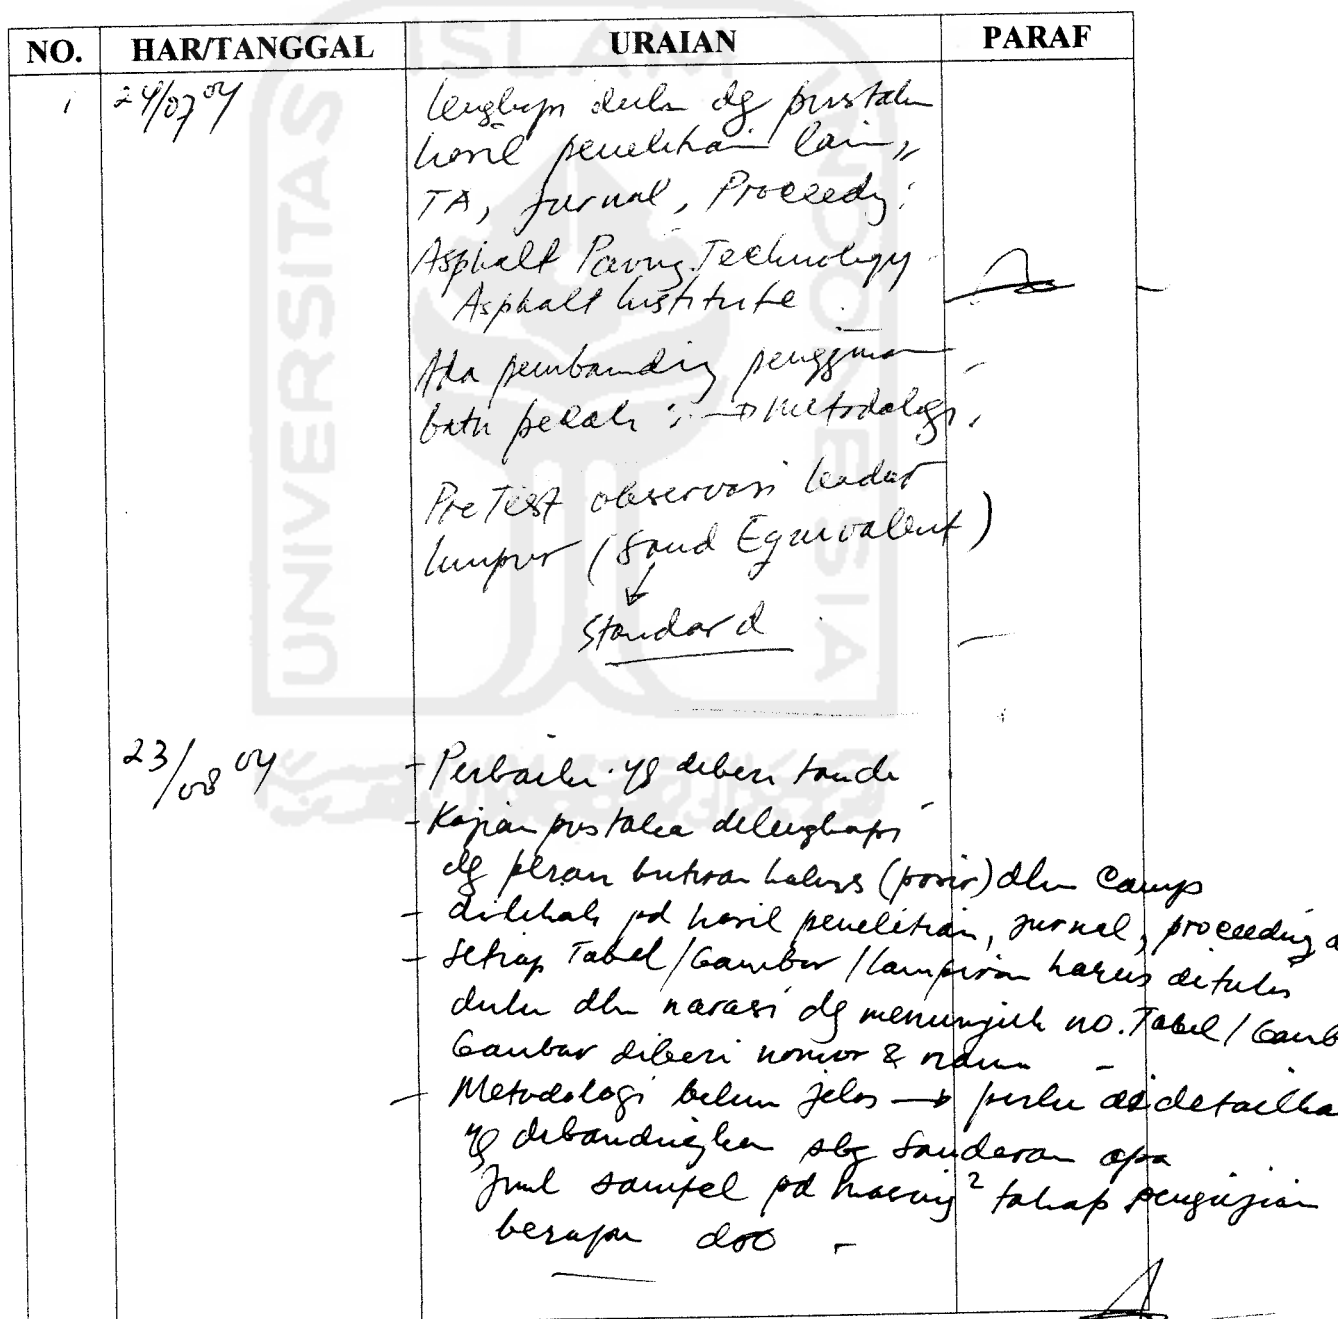 NO. HAR/TANGGAL URAIAN PARAF
1 24/07 04 lengkapi dulu dg pustaka
hasil penelitian lain,,
TA, Jurnal, Proceedg:
Asphalt Paving Technology
Asphalt Institute
Ada pembanding penggunaan
batu pecah ; → metodologi,
Pre Test observasi kadar
lumpur (Sand Equivalent)
↓
Standard
23/08 04 - Perbaiki yg diberi tanda
- Kajian pustaka dilengkapi
dg peran butiran halus (pasir) dlm Camp
- dilihat pd hasil penelitian, jurnal, proceeding
- Setiap Tabel/Gambar/lampiran harus ditulis
dulu dlm narasi dg menunjuk no. Tabel/Gamb
Gambar diberi nomor &
- Metodologi belum jelas → perlu didetailka
yg dibandingkan sbg sandaran apa
Juml sampel pd masing² tahap pengujian
berapa dsb -
UNIVERSITAS
ISLAM
INDONESIA